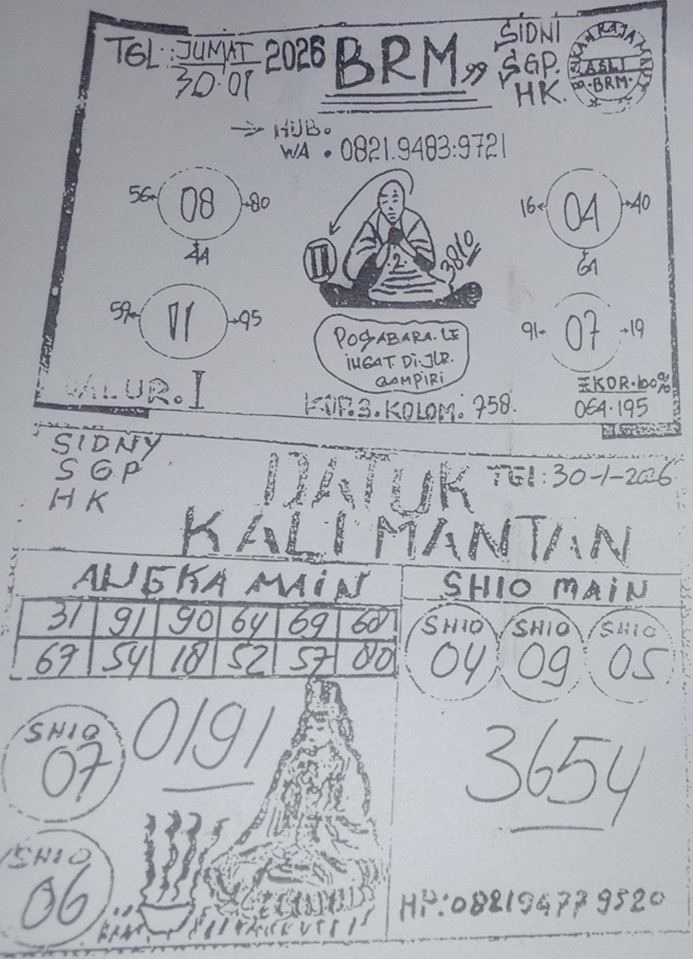 TGL: JUMAT 2026
30-01
BRM"
SIDNI
SGP.
HK.
ASLI
BRM
→ HUB.
WA . 0821.9483.9721
56 08 80
44
16 04 40
61
II
2
3810
59 01 95
91 07 19
POGABARA.LE
INGAT DI.JLR.
GAMPIRI
JALUR. I
KOP.3.KOLOM: 758.
EKOR.100%
064.195
SIDNY
SGP
HK
DATUK
KALIMANTAN
TGL: 30-1-2026
ANGKA MAIN
31 91 90 64 69 60
67 54 18 52 57 00
SHIO MAIN
SHIO 04
SHIO 09
SHIO 05
SHIO 07
0191
3654
SHIO 06
HP:082194779520